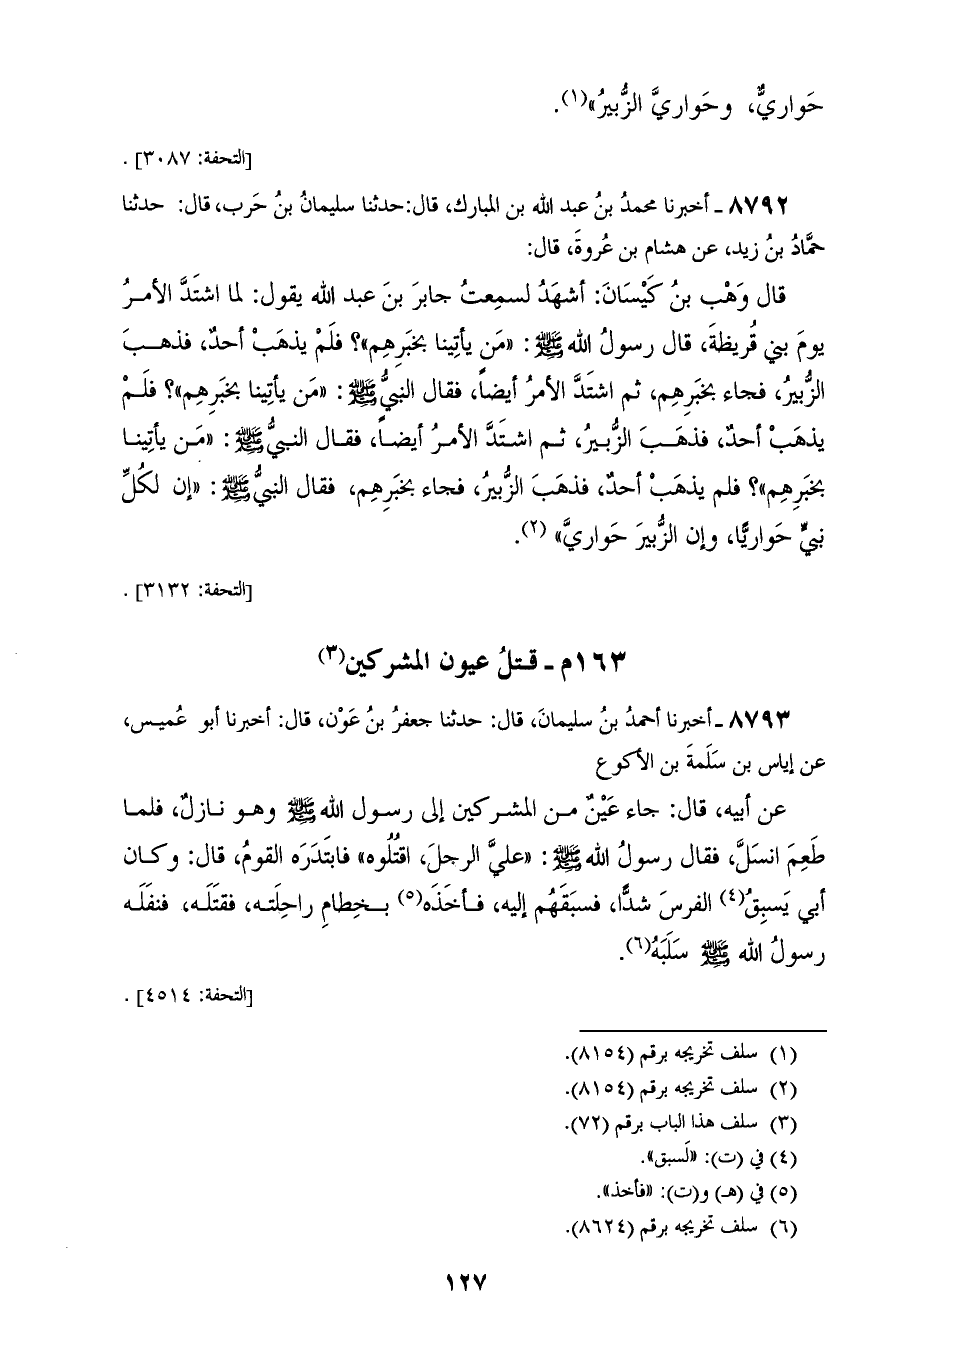 حَواريٌّ، وحَواريَّ الزُّبيرُ»(١).
[التحفة: ٣٠٨٧] .
٨٧٩٢ ـ أخبرنا محمدُ بنُ عبد الله بن المبارك، قال:حدثنا سليمانُ بنُ حَرب، قال: حدثنا
حمَّادُ بنُ زيد، عن هشام بن عُروةَ، قال:
قال وَهْب بنُ كَيْسَانَ: أشهَدُ لسمِعتُ جابرَ بنَ عبد الله يقول: لما اشتَدَّ الأمرُ
يومَ بني قُريظةَ، قال رسولُ الله ﷺ : «مَن يأتِينا بخَبَرِهِم»؟ فلَمْ يذهَبْ أحدٌ، فذهبَ
الزُّبيرُ، فجاء بخَبَرِهِم، ثم اشتَدَّ الأمرُ أيضاً، فقال النبيُّ ﷺ : «مَن يأتِينا بخَبَرِهِم»؟ فلَمْ
يذهَبْ أحدٌ، فذهَبَ الزُّبيرُ، ثم اشتَدَّ الأمرُ أيضاً، فقال النبيُّ ﷺ : «مَن يأتِينا
بخَبَرِهِم»؟ فلم يذهَبْ أحدٌ، فذهَبَ الزُّبيرُ، فجاء بخَبَرِهِم، فقال النبيُّ ﷺ : «إن لكُلِّ
نبيٍّ حَواريًّا، وإن الزُّبيرَ حَواريَّ» (٢).
[التحفة: ٣١٣٢] .
١٦٣م ـ قتلُ عيون المشركين(٣)
٨٧٩٣ ـ أخبرنا أحمدُ بنُ سليمانَ، قال: حدثنا جعفرُ بنُ عَوْن، قال: أخبرنا أبو عُميس،
عن إياس بن سَلَمةَ بن الأكوع
عن أبيه، قال: جاء عَيْنٌ من المشركين إلى رسول الله ﷺ وهو نازلٌ، فلما
طَعِمَ انسَلَّ، فقال رسولُ الله ﷺ : «عليَّ الرجلَ، اقتُلُوه» فابتَدَرَه القومُ، قال: وكان
أبي يَسبِقُ(٤) الفرسَ شدًّا، فسبَقَهُم إليه، فأخَذَه(٥) بخِطامِ راحِلَته، فقتَلَه، فنفَلَه
رسولُ الله ﷺ سَلَبَهُ(٦).
[التحفة: ٤٥١٤] .
(١) سلف تخريجه برقم (٨١٥٤).
(٢) سلف تخريجه برقم (٨١٥٤).
(٣) سلف هذا الباب برقم (٧٢).
(٤) في (ت): «لَسبق».
(٥) في (هـ) و(ت): «فأخذ».
(٦) سلف تخريجه برقم (٨٦٢٤).
١٢٧